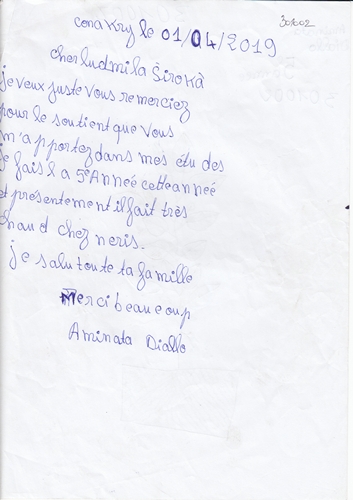 301602
conakry le 01/04/2019
cher ludmila Širokà
je veux juste vous remerciez
pour le soutient que vous
m'apportez dans mes etu des
je fais la 5e Anneé cette anneé
et présentement il fait très
chaud chez
je salu toute ta famille
Merci beaucoup
Aminata Diallo